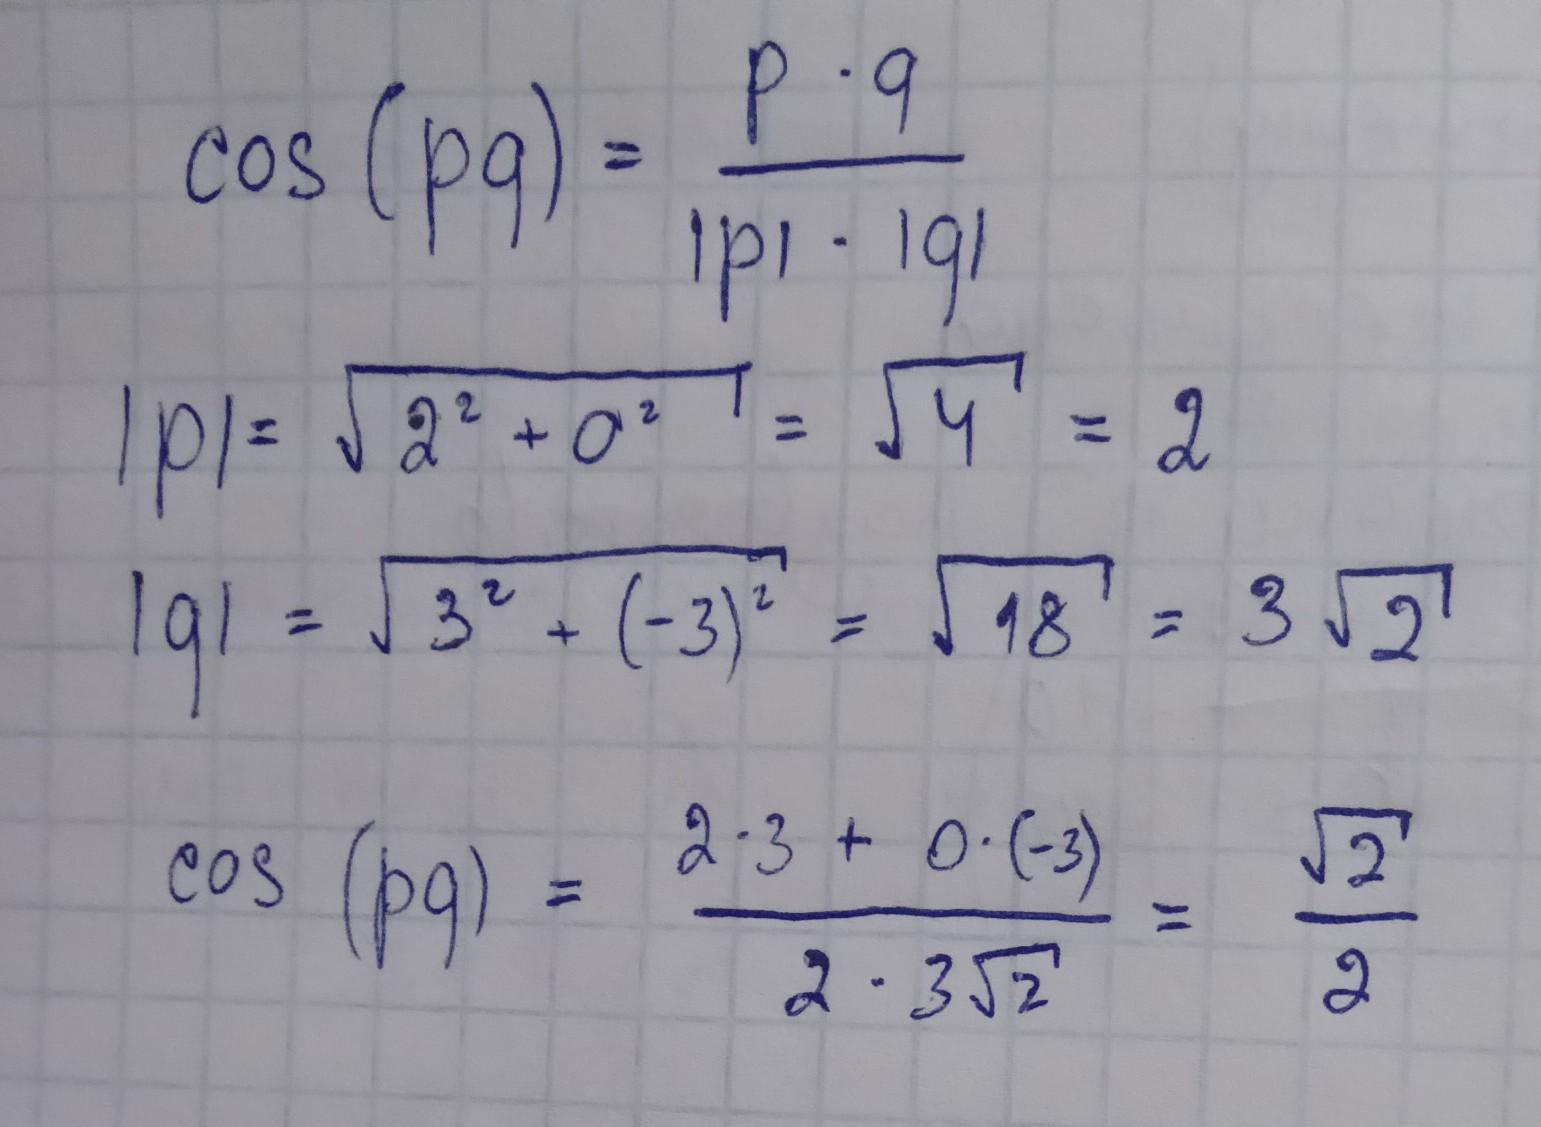 cos (pq) = p · q / |p| · |q|
|p| = √(2² + 0²) = √4 = 2
|q| = √(3² + (-3)²) = √18 = 3√2
cos (pq) = 2·3 + 0·(-3) / 2 · 3√2 = √2 / 2